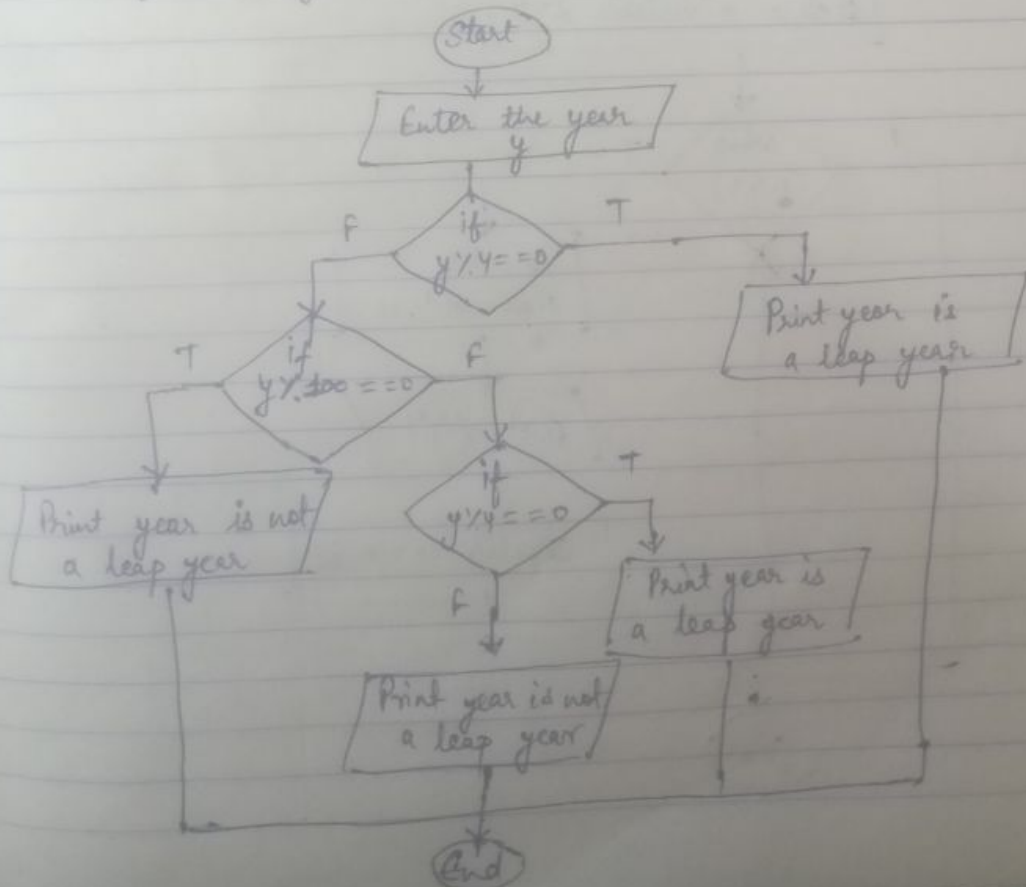 Start
Enter the year
y
F
if
y%4==0
T
Print year is
a leap year
T
if
y%100==0
F
if
y%4==0
T
Print year is not
a leap year
Print year is
a leap year
F
Print year is not
a leap year
End